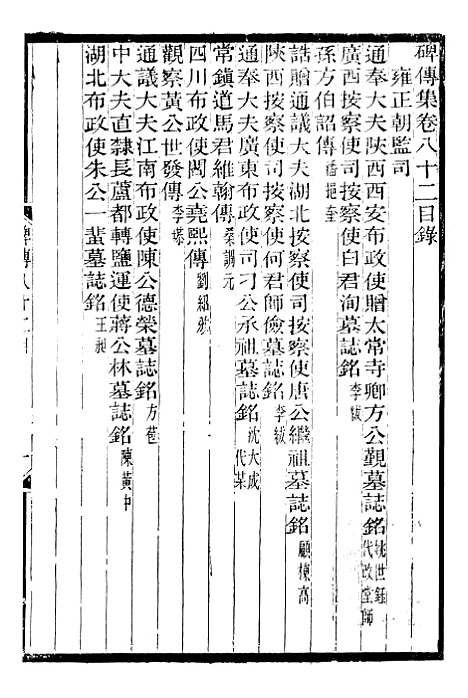 碑傳集卷八十二目錄
雍正朝監司
通奉大夫陝西西安布政使贈太常寺卿方公覲墓誌銘 姚世鈺代改堂師
廣西按察使司按察使白君洵墓誌銘 李紱
孫方伯詔傳 潘挹奎
誥贈通議大夫湖北按察使唐公繼祖墓誌銘 顧棟高
陝西按察使司按察使何君師儉墓誌銘 李紱
通奉大夫廣東布政使司刁公承祖墓誌銘 沈大成代某
常鎮道馬君維翰傳 桑調元
四川布政使閻公堯熙傳 劉紹攽
觀察黃公世發傳 李塨
通議大夫江南布政使陳公德榮墓誌銘 方苞
中大夫直隸長蘆都轉鹽運使蔣公林墓誌銘 陳黃中
湖北布政使朱公一蜚墓誌銘 王昶